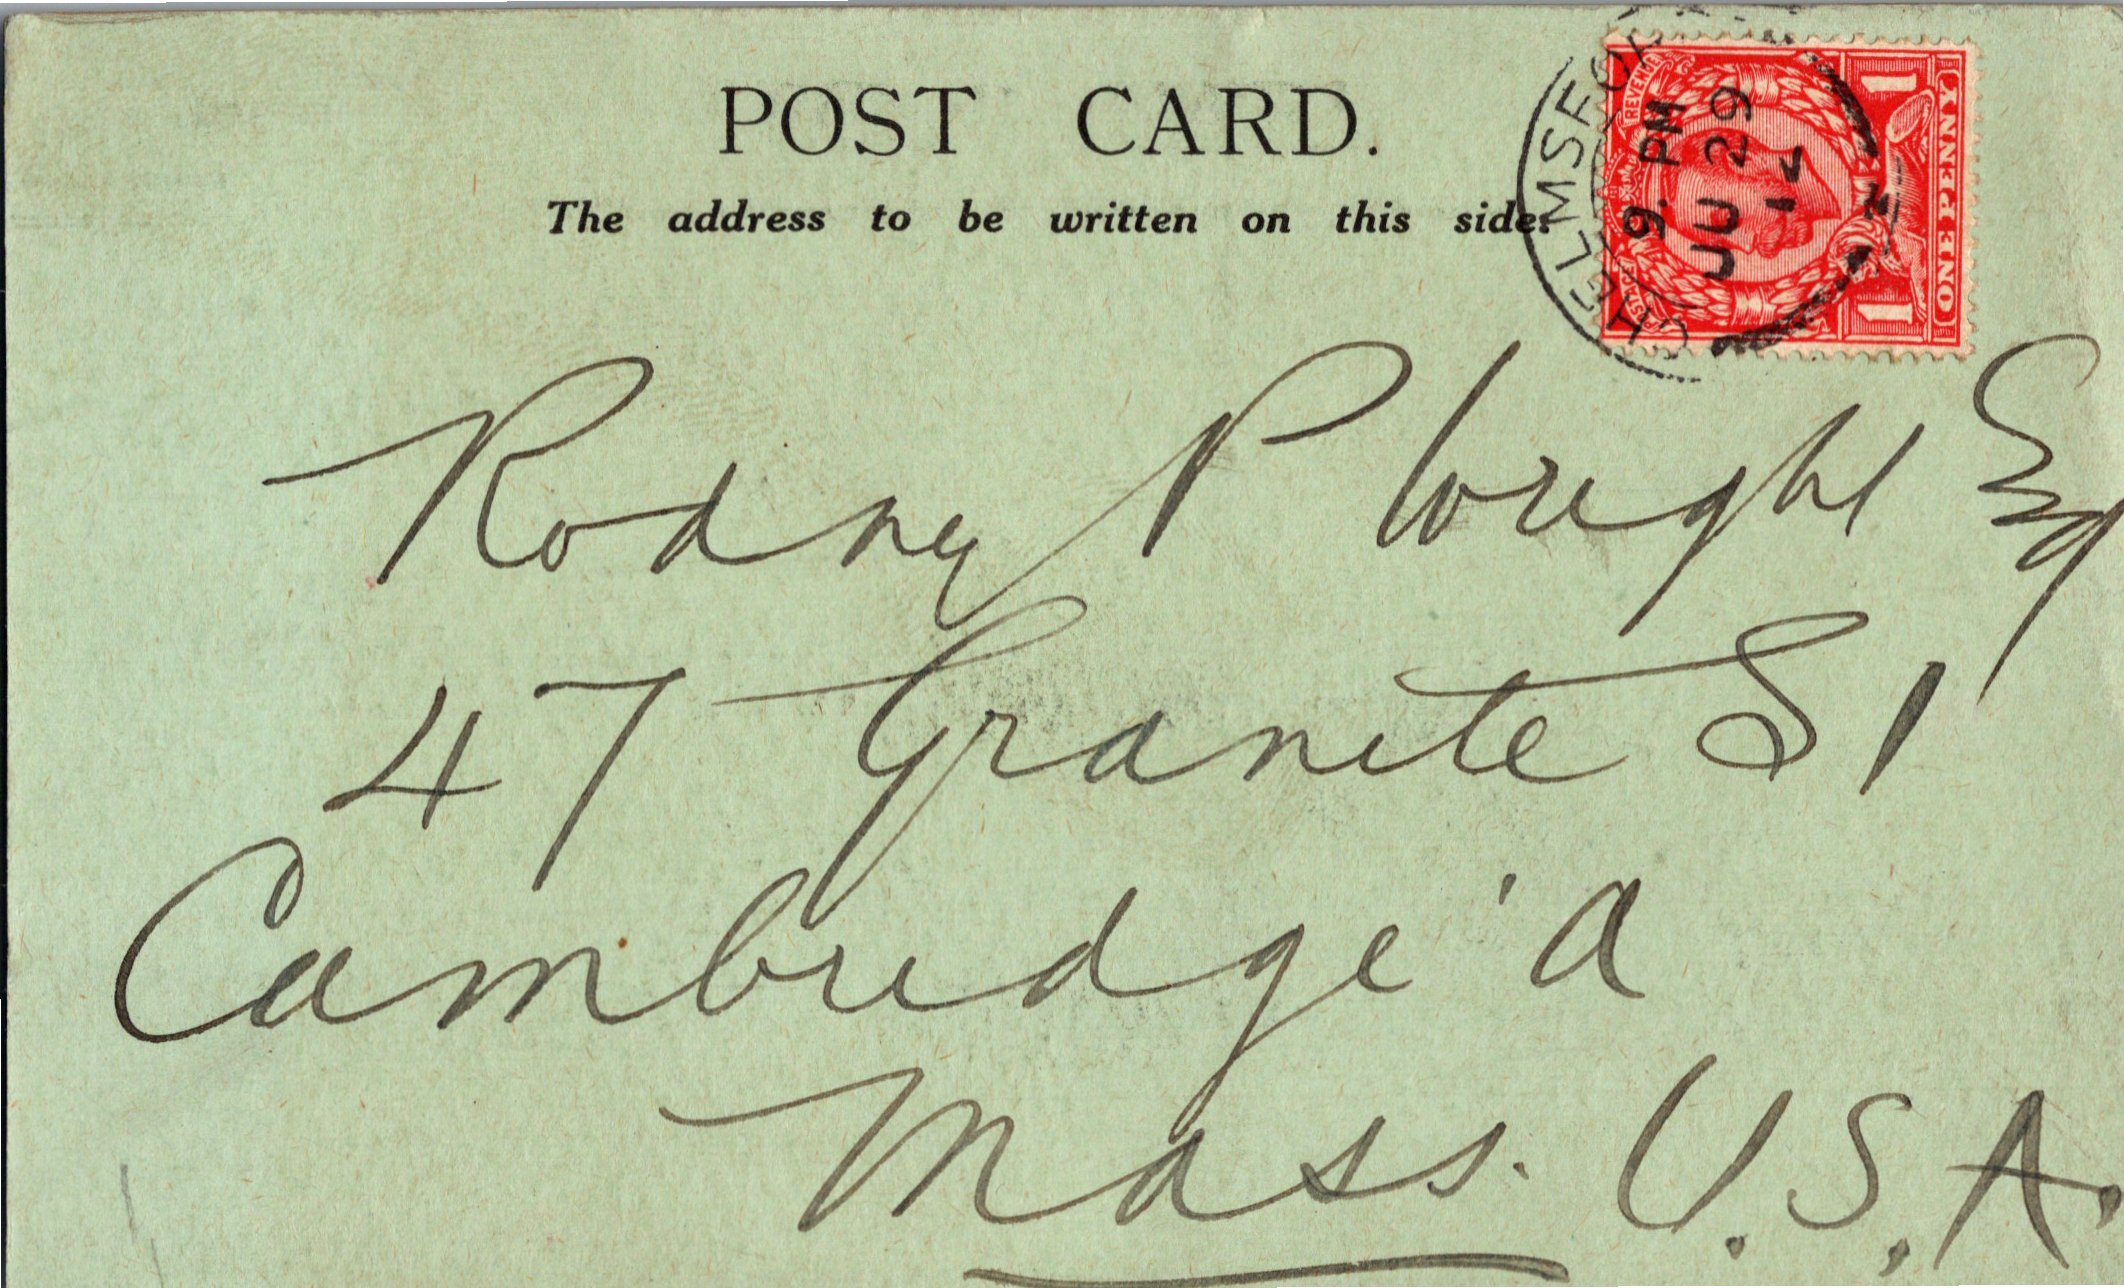 POST CARD.
The address to be written on this side.
CHELMSFOR
9. PM
JU 29
12
REVENUE
1
ONE PENNY
1
Rodney P Wright Esq
47 Granite St
Cambridge 'A
Mass. U.S.A.